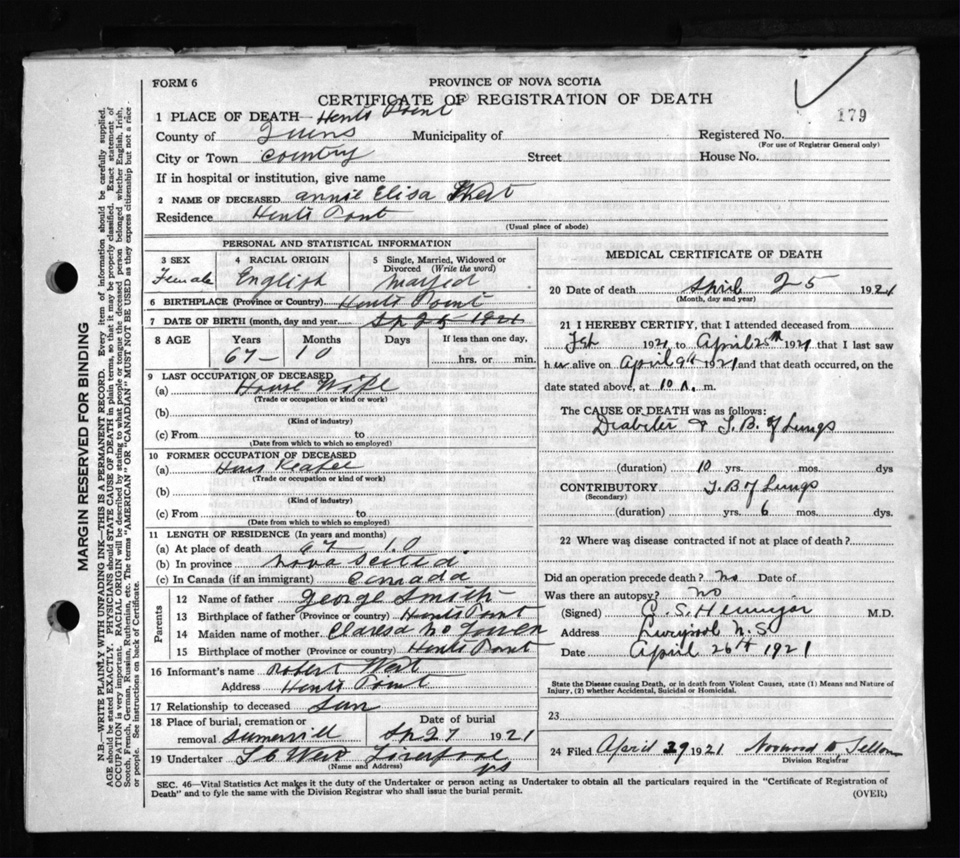 FORM 6
PROVINCE OF NOVA SCOTIA
CERTIFICATE OF REGISTRATION OF DEATH
179
1 PLACE OF DEATH— Hents Point
County of Quins Municipality of Registered No.
(For use of Registrar General only)
City or Town Country Street House No.
If in hospital or institution, give name
2 NAME OF DECEASED Annie Elisa West
Residence Hents Point
(Usual place of abode)
PERSONAL AND STATISTICAL INFORMATION
3 SEX 4 RACIAL ORIGIN 5 Single, Married, Widowed or
Divorced (Write the word)
Female English Maryed
6 BIRTHPLACE (Province or Country) Hents Point
7 DATE OF BIRTH (month, day and year) Ap 25 1921
8 AGE Years Months Days If less than one day,
67 — 10 hrs. or min.
9 LAST OCCUPATION OF DECEASED
(a) House Wife
(Trade or occupation or kind or work)
(b)
(Kind of industry)
(c) From to
(Date from which to which so employed)
10 FORMER OCCUPATION OF DECEASED
(a)
(Trade or occupation or kind of work)
(b)
(Kind of industry)
(c) From to
(Date from which to which so employed)
11 LENGTH OF RESIDENCE (In years and months)
(a) At place of death 67 10
(b) In province Nova Scotia
(c) In Canada (if an immigrant) Canada
Parents
12 Name of father George Smith
13 Birthplace of father (Province or country) Hents Point
14 Maiden name of mother Claresa Mc Gowen
15 Birthplace of mother (Province or country) Hents Point
16 Informant's name Robert West
Address Hents Point
17 Relationship to deceased Son
18 Place of burial, cremation or Date of burial
removal Sumervill Ap 27 1921
19 Undertaker West Liverpool
(Name and Address) NS
MEDICAL CERTIFICATE OF DEATH
20 Date of death April 25 1921
(Month, day and year)
21 I HEREBY CERTIFY, that I attended deceased from
Feb 1921 to April 25th 1921 that I last saw
her alive on April 9th 1921 and that death occurred, on the
date stated above, at 10 A. m.
The CAUSE OF DEATH was as follows:
Diabetes & T.B. of Lungs
(duration) 10 yrs. mos. dys
CONTRIBUTORY T.B of Lungs
(Secondary)
(duration) yrs. 6 mos. dys.
22 Where was disease contracted if not at place of death?
Did an operation precede death? No Date of
Was there an autopsy? No
(Signed) M.D.
Address Liverpool N.S
Date April 26th 1921
State the Disease causing Death, or in death from Violent Causes, state (1) Means and Nature of
Injury, (2) whether Accidental, Suicidal or Homicidal.
23
24 Filed April 29 1921
Division Registrar
SEC. 46—Vital Statistics Act makes it the duty of the Undertaker or person acting as Undertaker to obtain all the particulars required in the "Certificate of Registration of
Death" and to fyle the same with the Division Registrar who shall issue the burial permit.
(OVER)
MARGIN RESERVED FOR BINDING
N.B.—WRITE PLAINLY WITH UNFADING INK—THIS IS A PERMANENT RECORD. Every item of information should be carefully supplied.
AGE should be stated EXACTLY. PHYSICIANS should STATE CAUSE OF DEATH in plain terms, so that it may be properly classified. Exact statement of
OCCUPATION is very important. RACIAL ORIGIN will be described by stating to what people or tongue the deceased person belonged whether English, Irish,
Scotch, French, German, Russian, Ruthenian, etc. The terms "AMERICAN" OR "CANADIAN" MUST NOT BE USED as they express citizenship but not a race
or people. See instructions on back of Certificate.